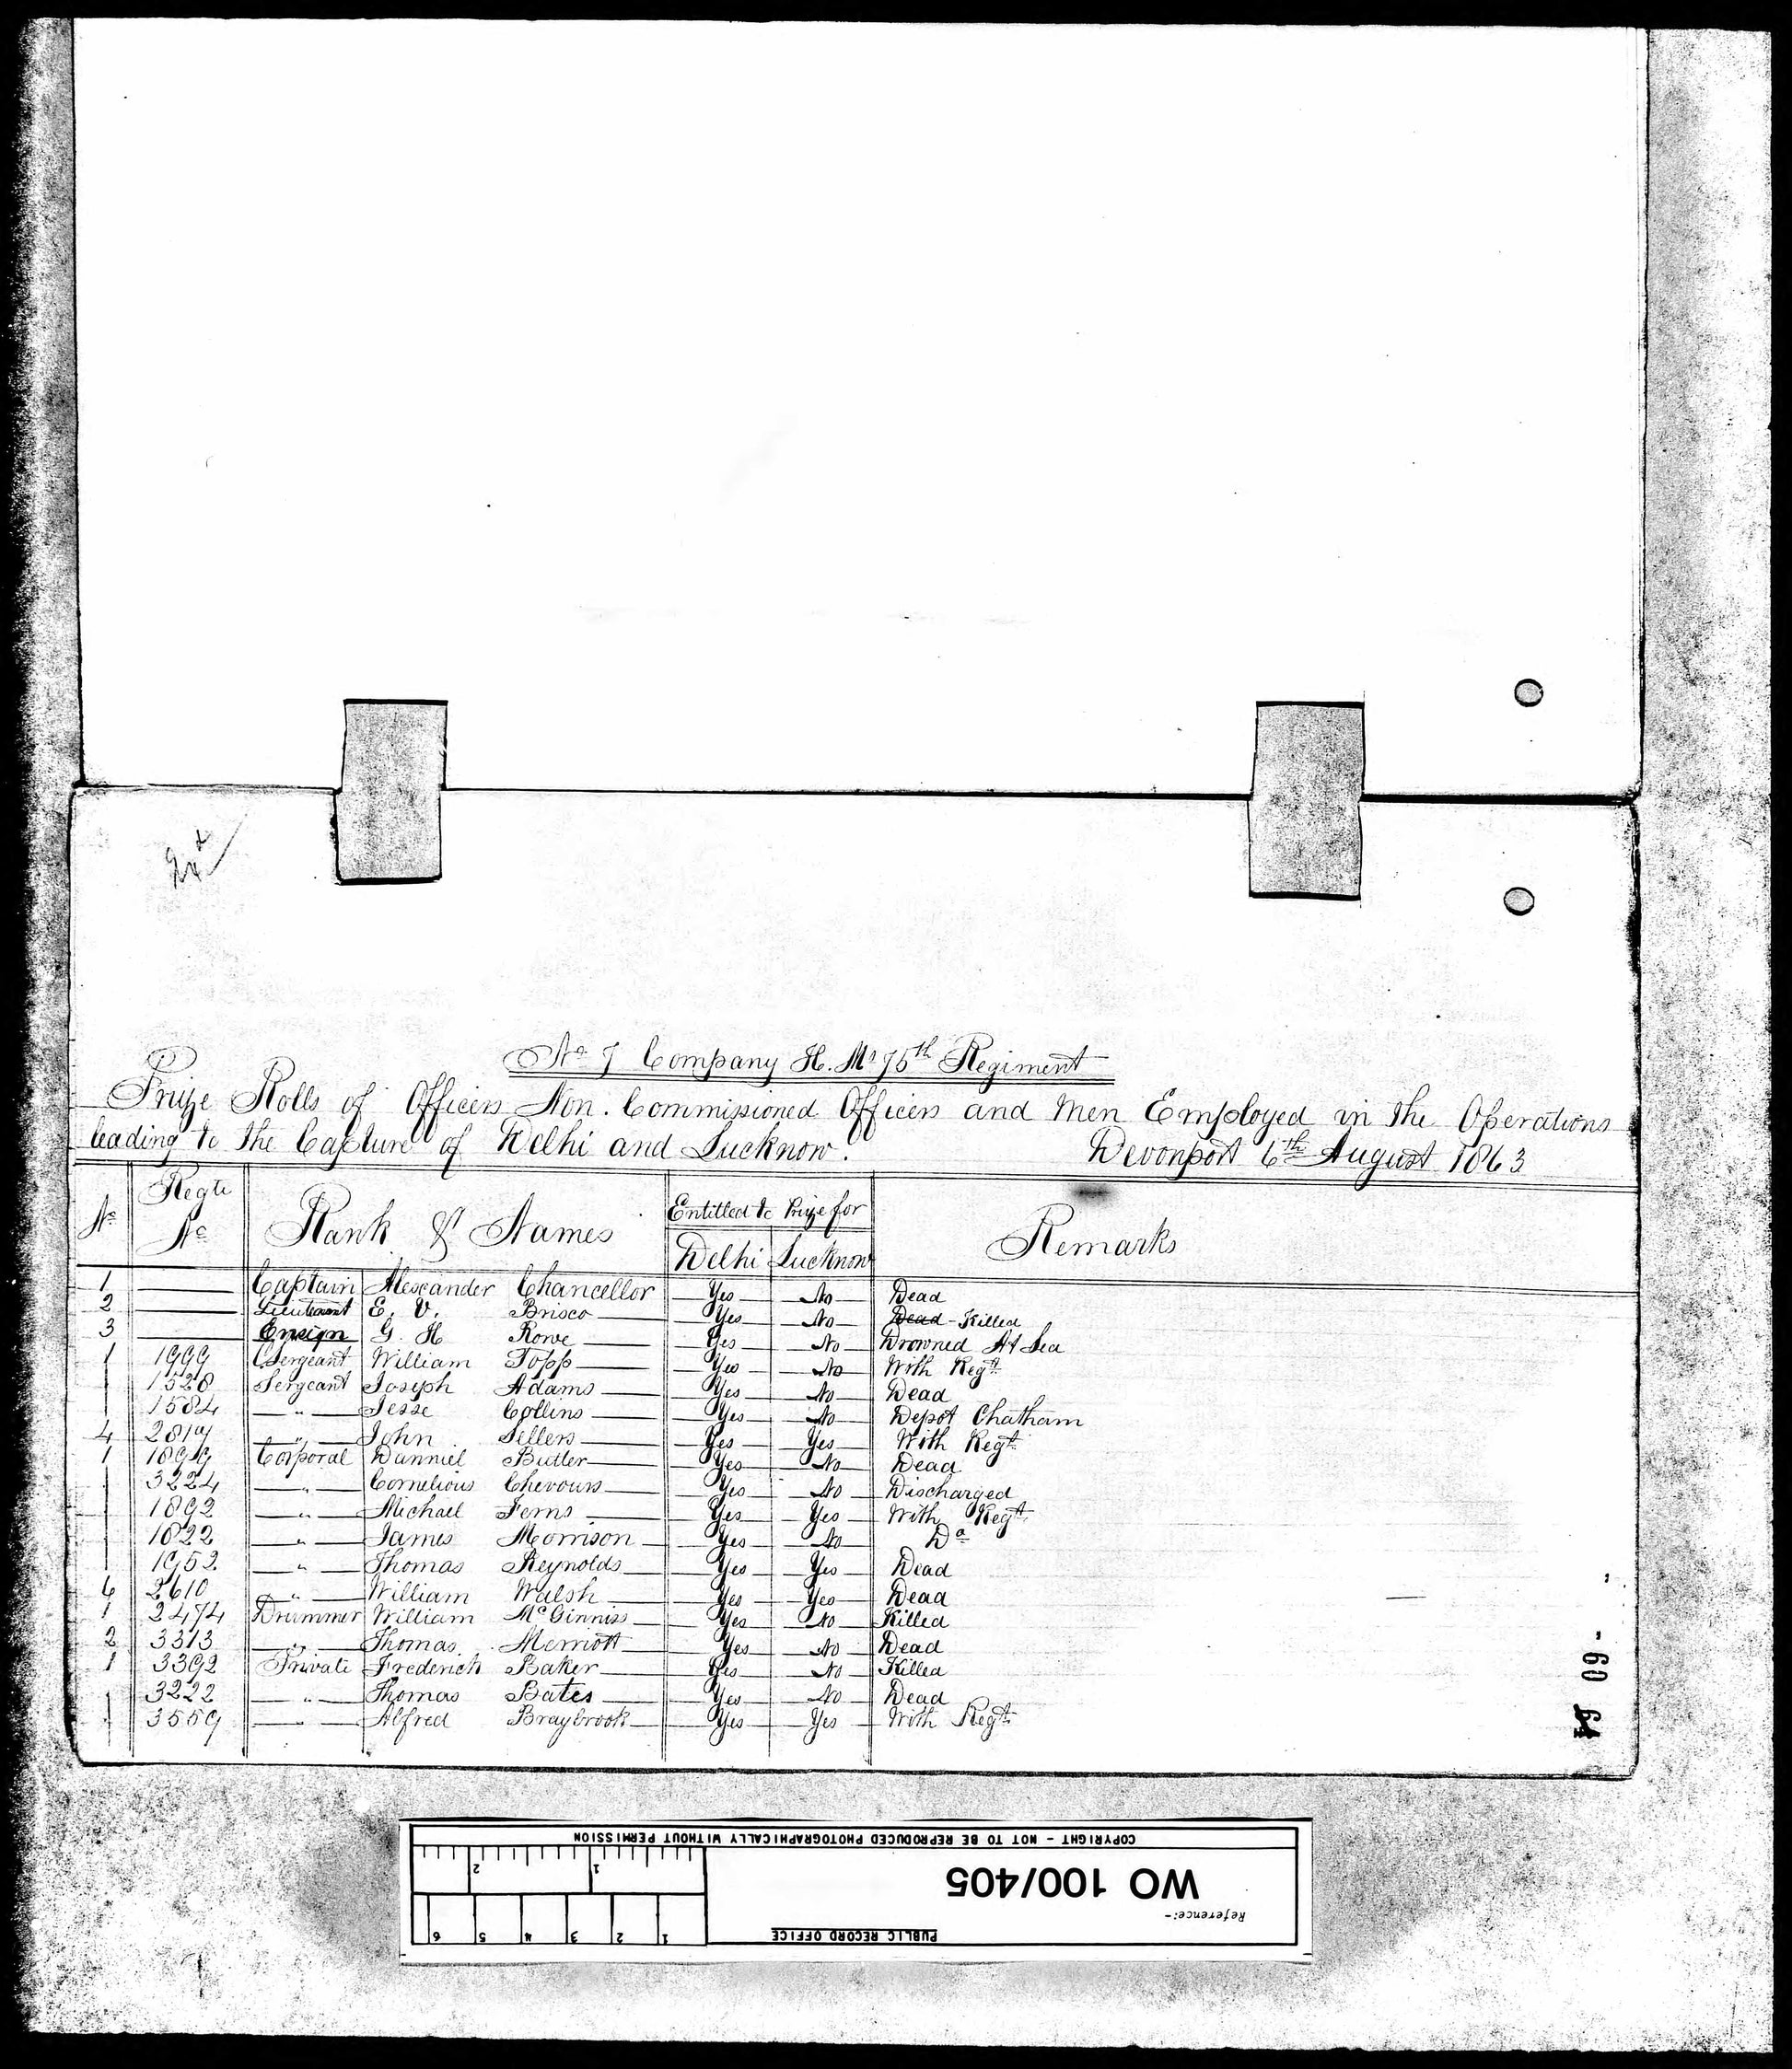 No 7 Company H. Ms 75th Regiment
Prize Rolls of Officers Non. Commissioned Officers and Men Employed in the Operations
leading to the Capture of Delhi and Lucknow. Devonport 6th August 1863
No Regtl No Rank & Names Entitled to Prize for Remarks
Delhi Lucknow
1 Captain Alexander Chancellor Yes No Dead
2 Lieutenant E. V. Brisco Yes No Dead - Killed
3 Ensign G. H Rowe Yes No Drowned At Sea
1 1999 CSergeant William Topp Yes No With Regt
1528 Sergeant Joseph Adams Yes No Dead
1584 " Jesse Collins Yes No Depot Chatham
4 " John Sellers Yes Yes With Regt
1 1899 Corporal Danniel Butler Yes No Dead
3224 " Cornelious Chevours Yes No Discharged
1892 " Michael Ferns Yes Yes With Regt
1822 " James Morrison Yes No Do
1952 " Thomas Reynolds Yes Yes Dead
6 2610 " William Walsh Yes Yes Dead
1 2474 Drummer William McGinniss Yes No Killed
2 3313 " Thomas Merriott Yes No Dead
1 3392 Private Frederick Baker Yes No Killed
3222 " Thomas Bates Yes No Dead
3559 " Alfred Braybrook Yes Yes With Regt
COPYRIGHT - NOT TO BE REPRODUCED PHOTOGRAPHICALLY WITHOUT PERMISSION
2 1
WO 100/405
Reference:-
6 5 4 3 2 1
PUBLIC RECORD OFFICE